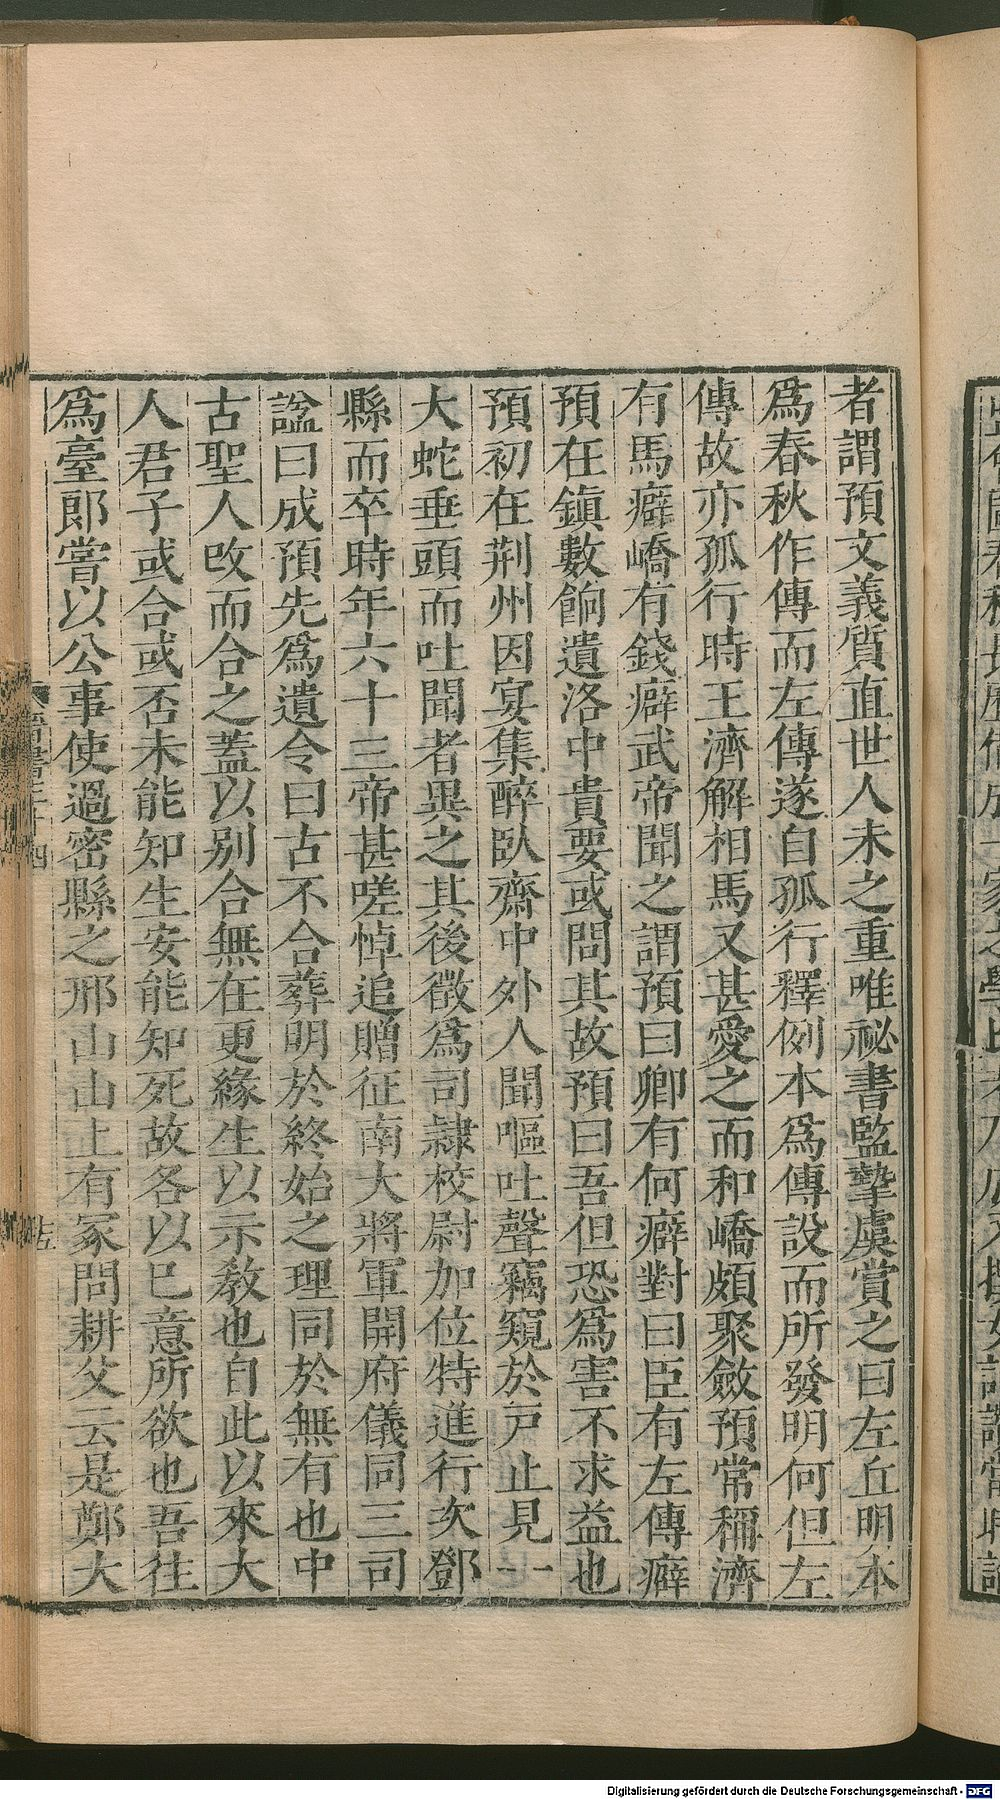 者謂預文義質直世人未之重唯祕書監摯虞賞之曰左丘明本
爲春秋作傳而左傳遂自孤行釋例本爲傳設而所發明何但左
傳故亦孤行時王濟解相馬又甚愛之而和嶠頗聚斂預常稱濟
有馬癖嶠有錢癖武帝聞之謂預曰卿有何癖對曰臣有左傳癖
預在鎮數餉遺洛中貴要或問其故預曰吾但恐爲害不求益也
預初在荆州因宴集醉臥齋中外人聞嘔吐聲竊窺於戸止見一
大蛇垂頭而吐聞者異之其後徵爲司隸校尉加位特進行次鄧
縣而卒時年六十三帝甚嗟悼追贈征南大將軍開府儀同三司
諡曰成預先爲遺令曰古不合葬明於終始之理同於無有也中
古聖人改而合之蓋以别合無在更緣生以示教也自此以來大
人君子或合或否未能知生安能知死故各以已意所欲也吾往
爲臺郎嘗以公事使過密縣之邢山山上有冢問耕父云是鄭大
Digitalisierung gefördert durch die Deutsche Forschungsgemeinschaft - DFG